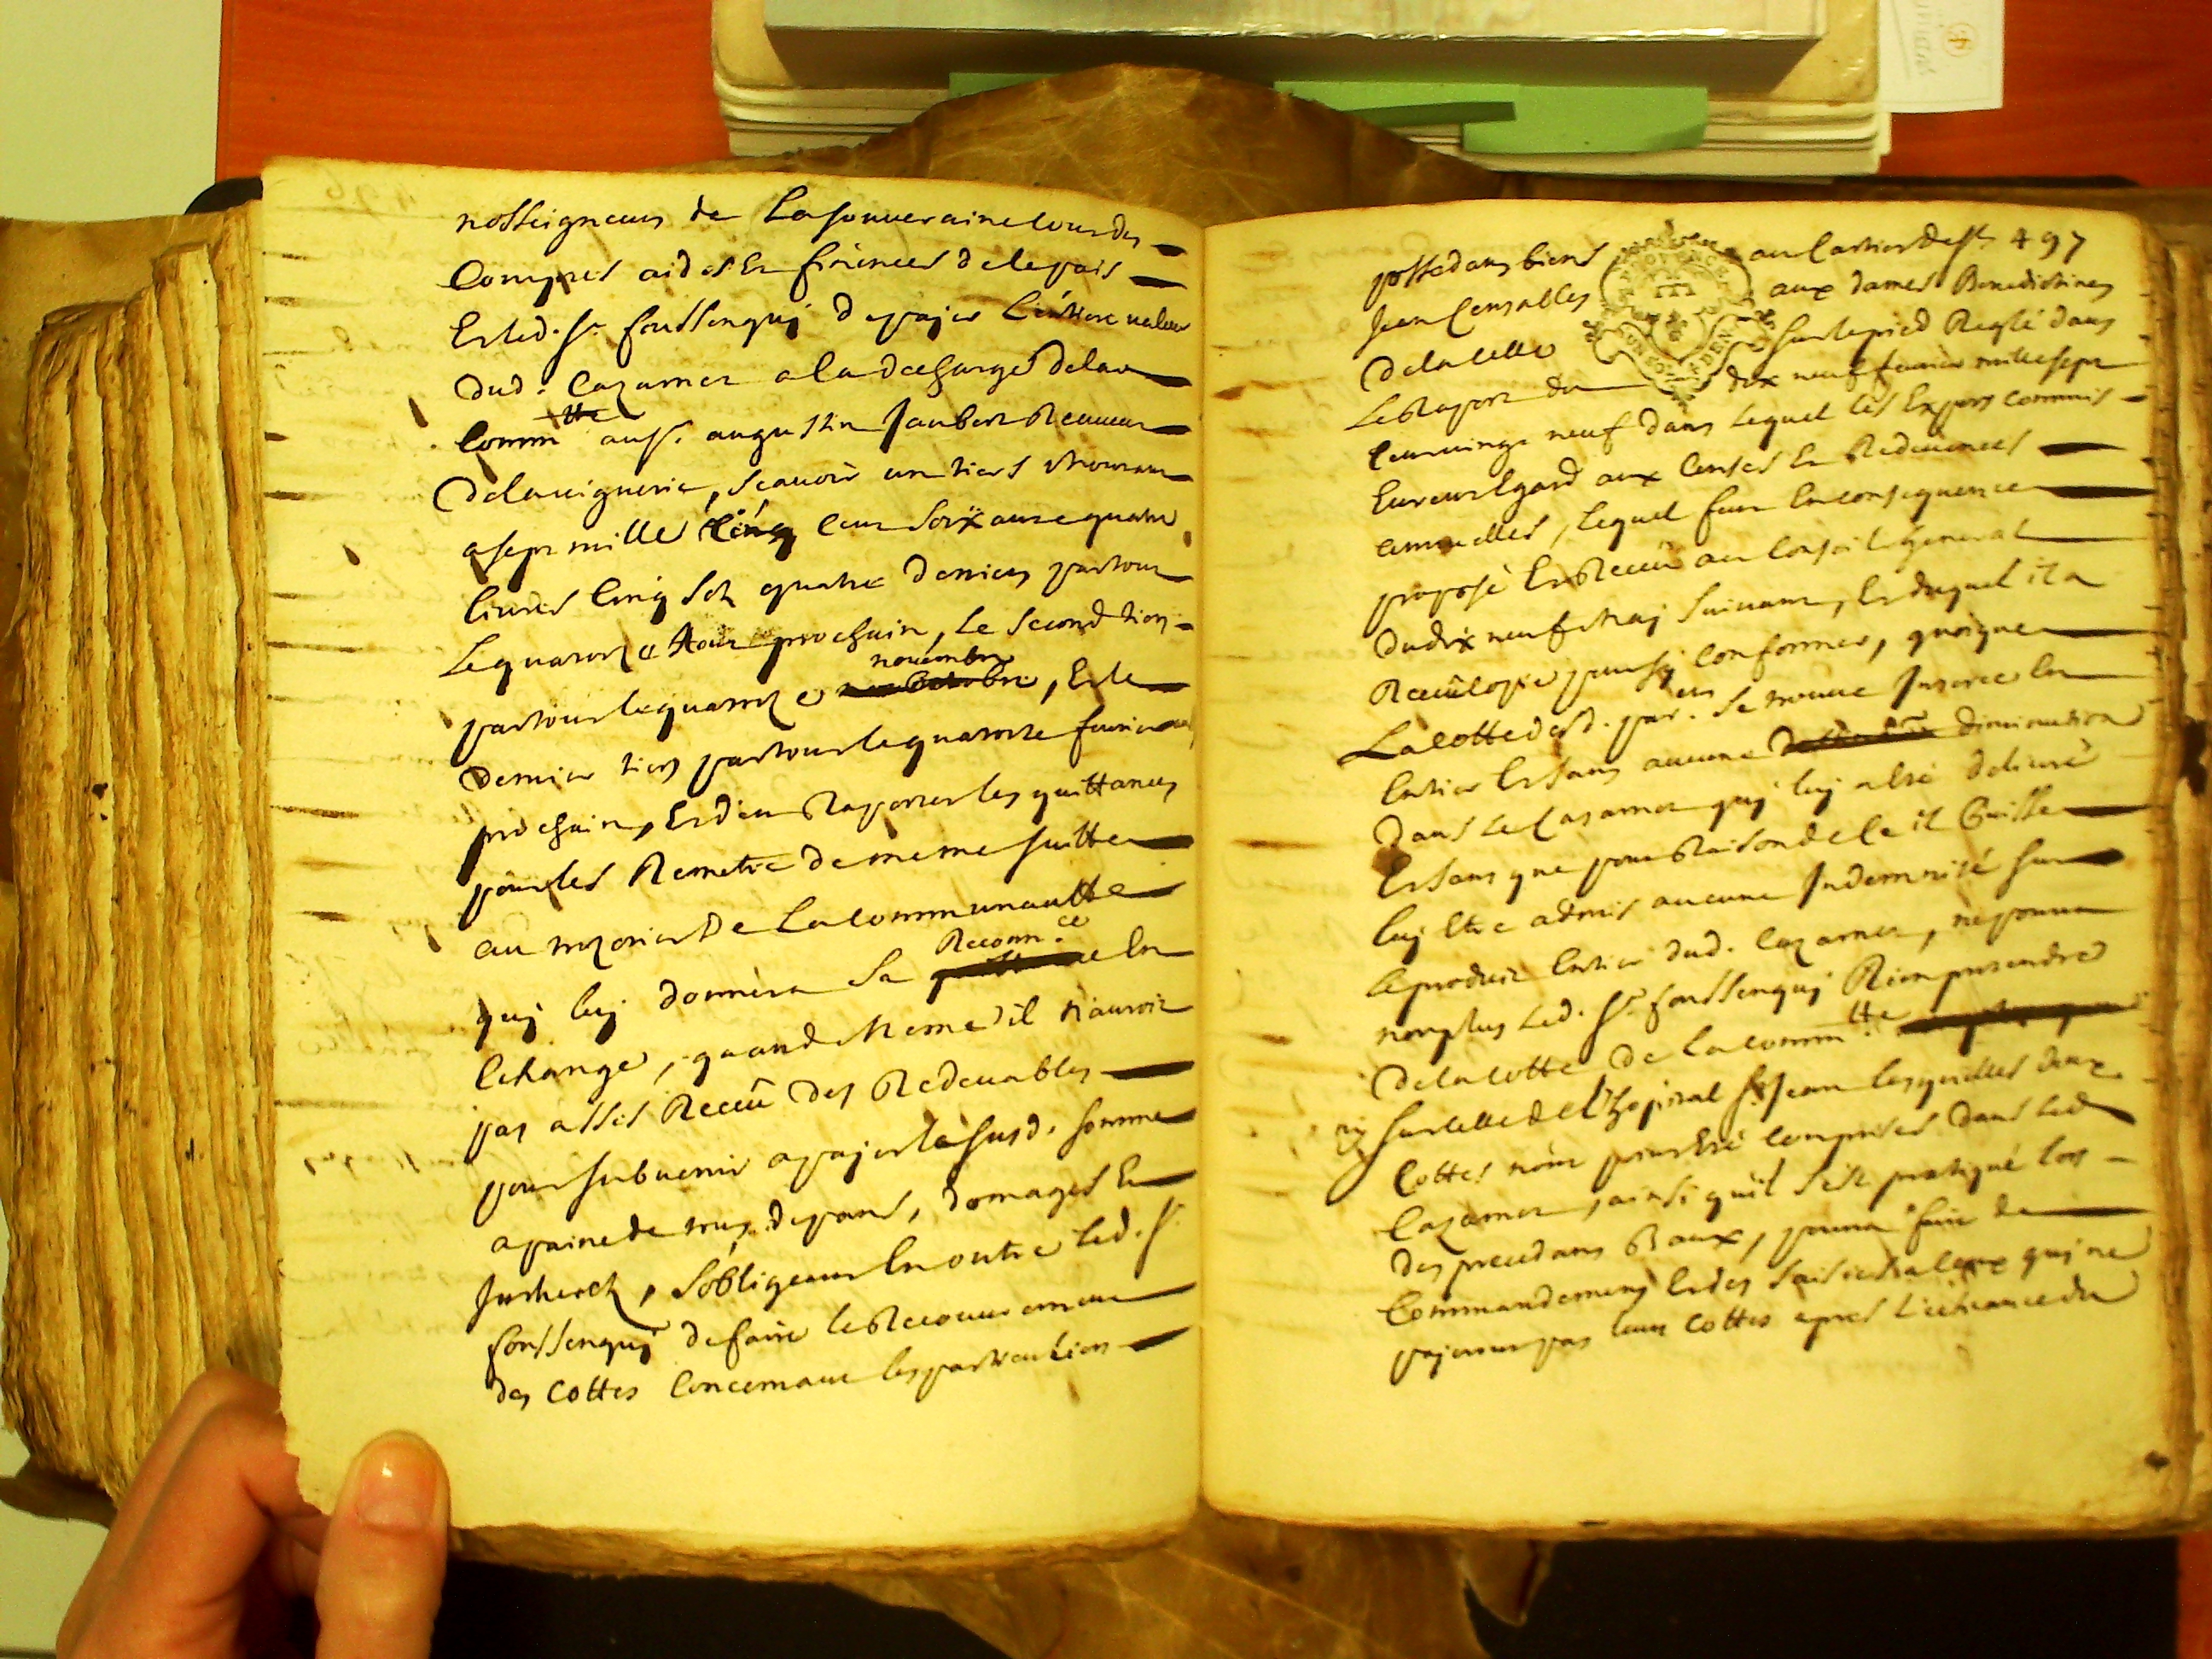 nosseigneurs de La souueraine Cour des
Comptes aides Et finences de ce pais
Et led. Sr. foussenquj de pajer L'entiere valeur
dud. Cazarnet a la descharge de la
Comm.tte au Sr. augustin Jaubert Receueur
de la viguerie, scauoir un tiers montant
a sept mille cinq cent soixante quatre
liures Cinq Sols quatre deniers par tout
Le quatorze Aout prochain, Le Second tiers
par tout le quatorze novembre, Et le
dernier tiers par tout le quatorze feurier
prochain, Et d'en Raporter les quittances
pour les Remetre de meme suitte
au trezorier De La communautte
quj luj donnera Sa Reconn.ce En
Echange, quand Meme il n'auroit
pas assés Receû des Redeuables
pour subuenir a pajer la susd. somme
a paine de tous depans, domages Et
Jnterets, s'obligeant En outre led. Sr.
foussenquj de faire le Recouurement
des cottes Concernant les particuliers
497
possedans biens au Cartier de St.
Jean Censables aux dames Benedictines
de la Celle sur le pied Reglé dans
Le Raport du dix neuf feurier mille sept
Cent vingt neuf dans Lequel les Experts commis
Eurent Egard aux Censes Et Redeuances
annuelles, Lequel fut En consequence
proposé Et Receû au Conseil General
du dix neuf Maj suiuant, Et duquel il a
Receû Copie pour s'j conformer, quoique
La cotte desd. par.ers se trouue Inseree En
Entier Et sans aucune diminution
dans Le Cazarnet quj luj a Eté deliuré
Et sans que pour Raison de Ce il Puisse
luj Etre admis aucune Indemnité sur
Le produit Entier dud. Cazarnet, ne pourra
non plus Led. Sr. foussenquj Rien pretendre
de la cotte de La comm.tte
nj sur Celle de L'hopital St Jean lesquelles deux
Cottes n'ont point Eté Comprises dans Led
Cazarnet, ainsi qu'il s'est pratiqué lors
des precedans Baux, pourra faire de
Commandemens Et des saisies a Ceux quj ne
pajeront pas leurs cottes apres L'echeance du